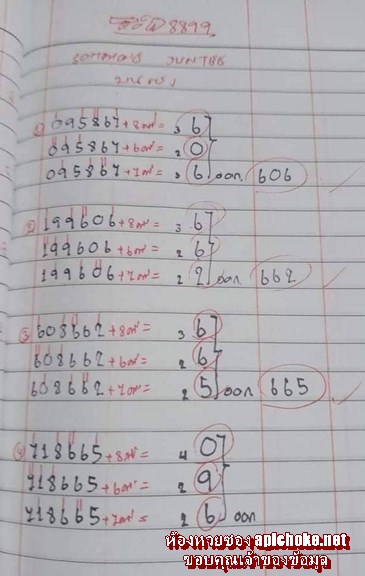 8899
① 095867+8ตัว= 3 6
095867+6ตัว= 2 0
095867+7ตัว= 3 6 ออก 606
② 199606+8ตัว= 3 6
199606+6ตัว= 2 6
199606+7ตัว= 2 2 ออก 662
③ 608662+8ตัว= 3 6
608662+6ตัว= 2 6
608662+7ตัว= 2 5 ออก 665
④ 718665+8ตัว= 4 0
718665+6ตัว= 2 9
718665+7ตัว= 2 6 ออก
ห้องหวยซอง apichoke.net
ขอบคุณเจ้าของข้อมูล